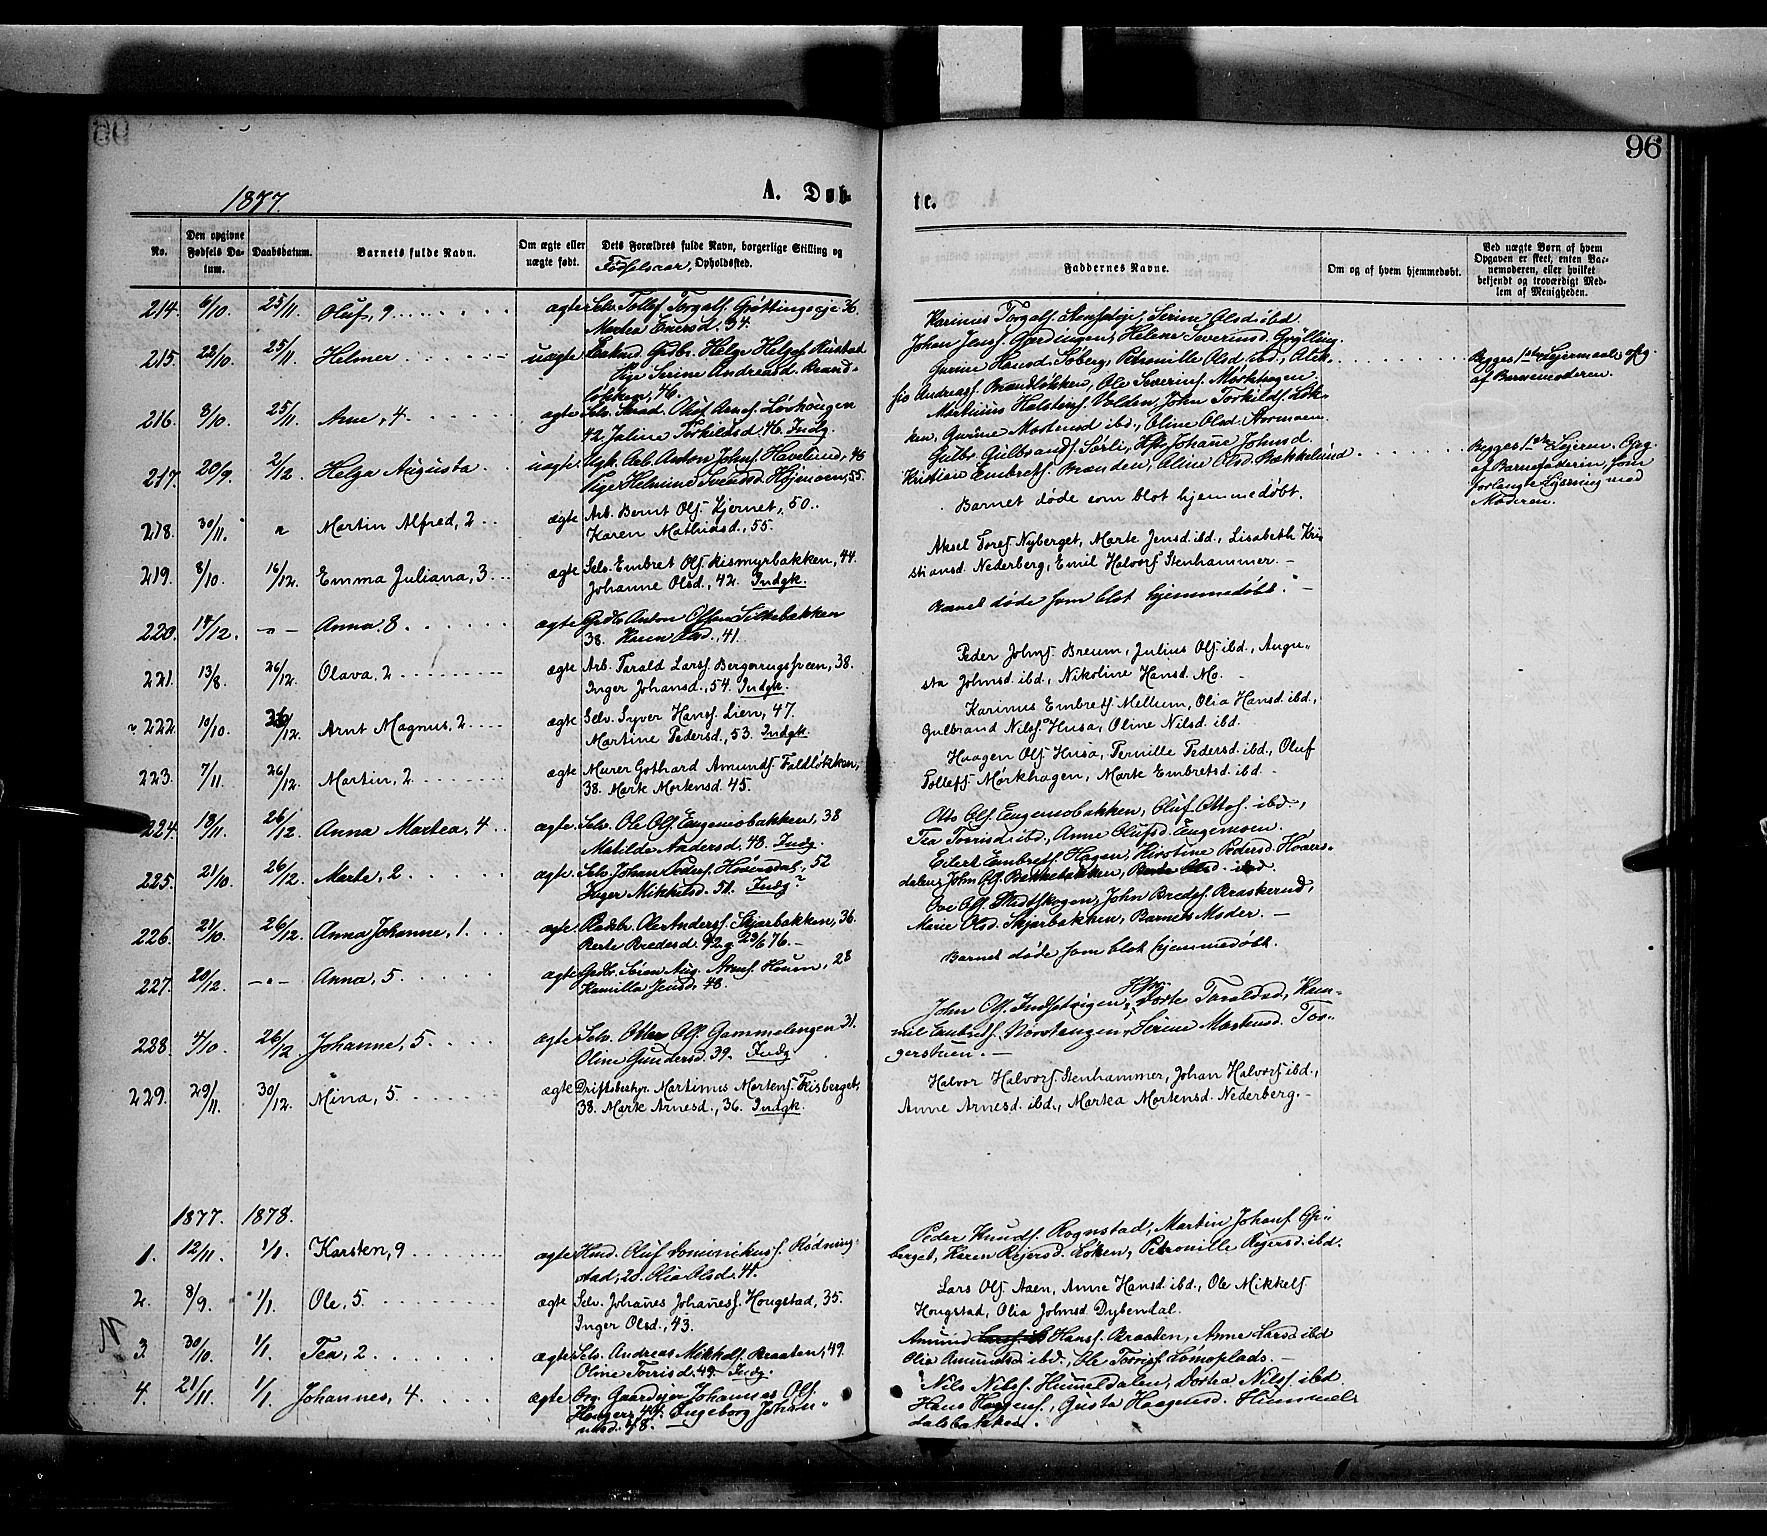 96
1877.
A. Døb-
te.
No.
Den opgivne Fødsels Datum.
Daabsdatum.
Barnets fulde Navn.
Om ægte eller uægte født.
Dets Forældres fulde Navn, borgerlige Stilling og
Fødselsaar, Opholdssted.
Faddernes Navne.
Om og af hvem hjemmedøbt.
Ved uægte Børn af hvem Opgaven er skeet, enten Barnemoderen, eller hvilket bekjendt og troværdigt Medlem af Menigheden.
214. 6/10. 25/11. Oluf, 9 ægte Selv. Tollef Torgals. 36
Martea Enersd. 34.
Karinus Torgals. Serine Olsd ibd
215. 22/10. 25/11. Helmer uægte Helge Helges. Rustad
Pige Serine Andreasd. Brand-
løkken, 46.
Johan Jens. Helene Severinsd.
Hansd. Søberg, Petronille Olsd ibd.,
Andreas. Brandløkken, Ole Severins. Mørkhagen
af Barnemoderen.
216. 8/10. 25/11. Arne, 4 ægte Selv. Oluf Arnes. Løvhaugen
42. Jaline Torkildsd. 46. Indg.
Martinus Halstens. Volden, John Torkilds. Løk-
ken, Gurine Mortensd ibd., Oline Olsd. Stormoen
217. 20/9. 2/12. Helga Augusta uægte Ugk. Arb. Anton Johns. Havelund, 48
Pige Helmine Svendsd. 55.
Gulbr. Gulbrands. Sørli, Johanne Johnsd.
Kristian Embrets. Brænden, Oline Olsd. Bækkelund
af Barnefaderen, som
forlangte Lysning med
Moderen.
218. 30/11. " Martin Alfred, 2 ægte Arb. Bernt Ols. Kjernet, 50.
Karen Mathiasd., 55.
Barnet døde som blot hjemmedøbt.
219. 8/10. 16/12. Emma Juliana, 3 ægte Selv. Embret Ols. Kismyrbakken, 44.
Johanne Olsd., 42. Indgk.
Aksel Tores. Nyberget, Marte Jensd. ibd., Lisabeth Kri-
stiansd. Nederberg, Emil Halvors. Stenhammer.
220. 14/12. -"- Anna, 8 ægte Anton Olsen Silkebakken
38. Karen Olsd., 41.
Barnet døde som blot hjemmedøbt.
221. 13/8. 26/12. Olava, 2 ægte Arb. Tarald Lars. 38.
Inger Johansd., 54. Indgk.
Peder Johns. Breum, Julius Ols. ibd., Augu-
sta Johnsd. ibd., Nikoline Hansd. Mo.
222. 10/10. 26/12. Arnt Magnus, 2 ægte Selv. Syver Hans. Lien, 47.
Martine Pedersd., 53. Indgk.
Karinus Embrets. Mellum, Olia Hansd. ibd.,
Gulbrand Nils. Husa, Oline Nilsd. ibd.
223. 7/11. 26/12. Martin, 2 ægte Murer Gothard Amunds. Faldløkken,
38. Marte Mortensd. 45.
Haagen Ols. Husa, Pernille Pedersd. ibd., Oluf
Tollefs. Mørkhagen, Marte Embretsd. ibd.
224. 18/11. 26/12. Anna Martea, 4 ægte Selv. Ole Ols. Engemobakken, 38
Matilde Andersd. 48. Indg.
Otto Ols. Engemobakken, Oluf Ottos. ibd.,
Tea Torrisd. ibd., Anne Olufsd. Engemoen.
225. 21/10. 26/12. Marte, 2 ægte Selv. Johan Peders. Hoversdal, 52
Inger Mikkelsd. 51. Indg.?
Eilert Embrets. Hagen, Kirstine Pedersd. Hovers-
dalen, John Ols. Berte Olsd. ibd.
226. 21/10. 26/12. Anna Johanne, 1. ægte Ole Anders. Skjærbakken, 36.
Berte Bredesd. 42 g. 29/6 76.
Ove Ols. Stadtskogen, John Bredes. Braskerud,
Marie Olsd. Skjærbakken, Barnets Moder.
227. 20/12. -"- Anna, 5 ægte Søren Aug. Arnes. Houm, 28
Kamilla Jensd., 48.
Barnet døde som blot hjemmedøbt.
228. 4/10. 26/12 Johanne, 5. ægte Selv. Otter Ols. Gammelengen 31.
Oline Gundersd. 39. Indg
John Ols. Dorte Taraldsd,
Serine Mortensd. Tor-
gerstuen.
229. 29/11. 30/12. Mina, 5. ægte Driftsbestyr. Martinus Mortens. Fiskberget,
38. Marte Arnesd., 36. Indgk.
Halvor Halvors. Stenhammer, Johan Halvors. ibd.,
Anne Arnesd. ibd., Martea Mortensd. Nederberg.
1877. 1878.
1. 12/11. 1/1. Karsten, 9 ægte Oluf Dominikuss. Rødning-
stad, 20. Olia Olsd. 41.
Peder Knuds. Rognstad, Martin Johans.
berget, Karen Reiersd. Løken, Petronille Reiersd. ibd.
2. 8/9. 1/1. Ole, 5. ægte Selv. Johanes Johanes. Hougstad, 35.
Inger Olsd., 43.
Lars Ols. Aaen, Anne Hansd. ibd., Ole Mikkels.
Hougstad, Olia Johnsd. Dybendal.
N
3. 30/10. 1/1. Tea, 2. ægte Selv. Andreas Mikkels. Braaten, 49.
Oline Torrisd. 49. Indg.
Amund Hans. Braaten, Anne Larsd ibd
Olia Amundsd. ibd., Ole Torris. Lømoplads.
4. 21/11. 1/1. Johannes, 4 ægte Gaardejer Johannes Ols.
44. Ingeborg Johan-
nesd. 48.
Nils Nils. Hummeldalen, Dortea Nilsd. ibd
Hans Haagens., Gusta Haagensd. Hummel-
dalsbakken.